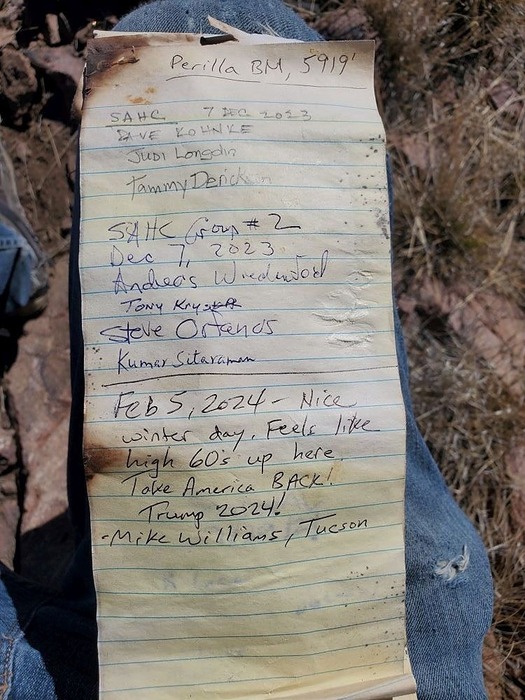 Perilla BM, 5919'
SAHC 7 DEC 2023
DAVE KOHNKE
JUDI Longdin
Tammy Derickson
SAHC Group #2
Dec 7, 2023
Andreas
Tony
Steve
Kumar Sitaraman
Feb 5, 2024 - Nice
winter day. Feels like
high 60's up here.
Take America BACK!
Trump 2024!
-Mike Williams, Tucson